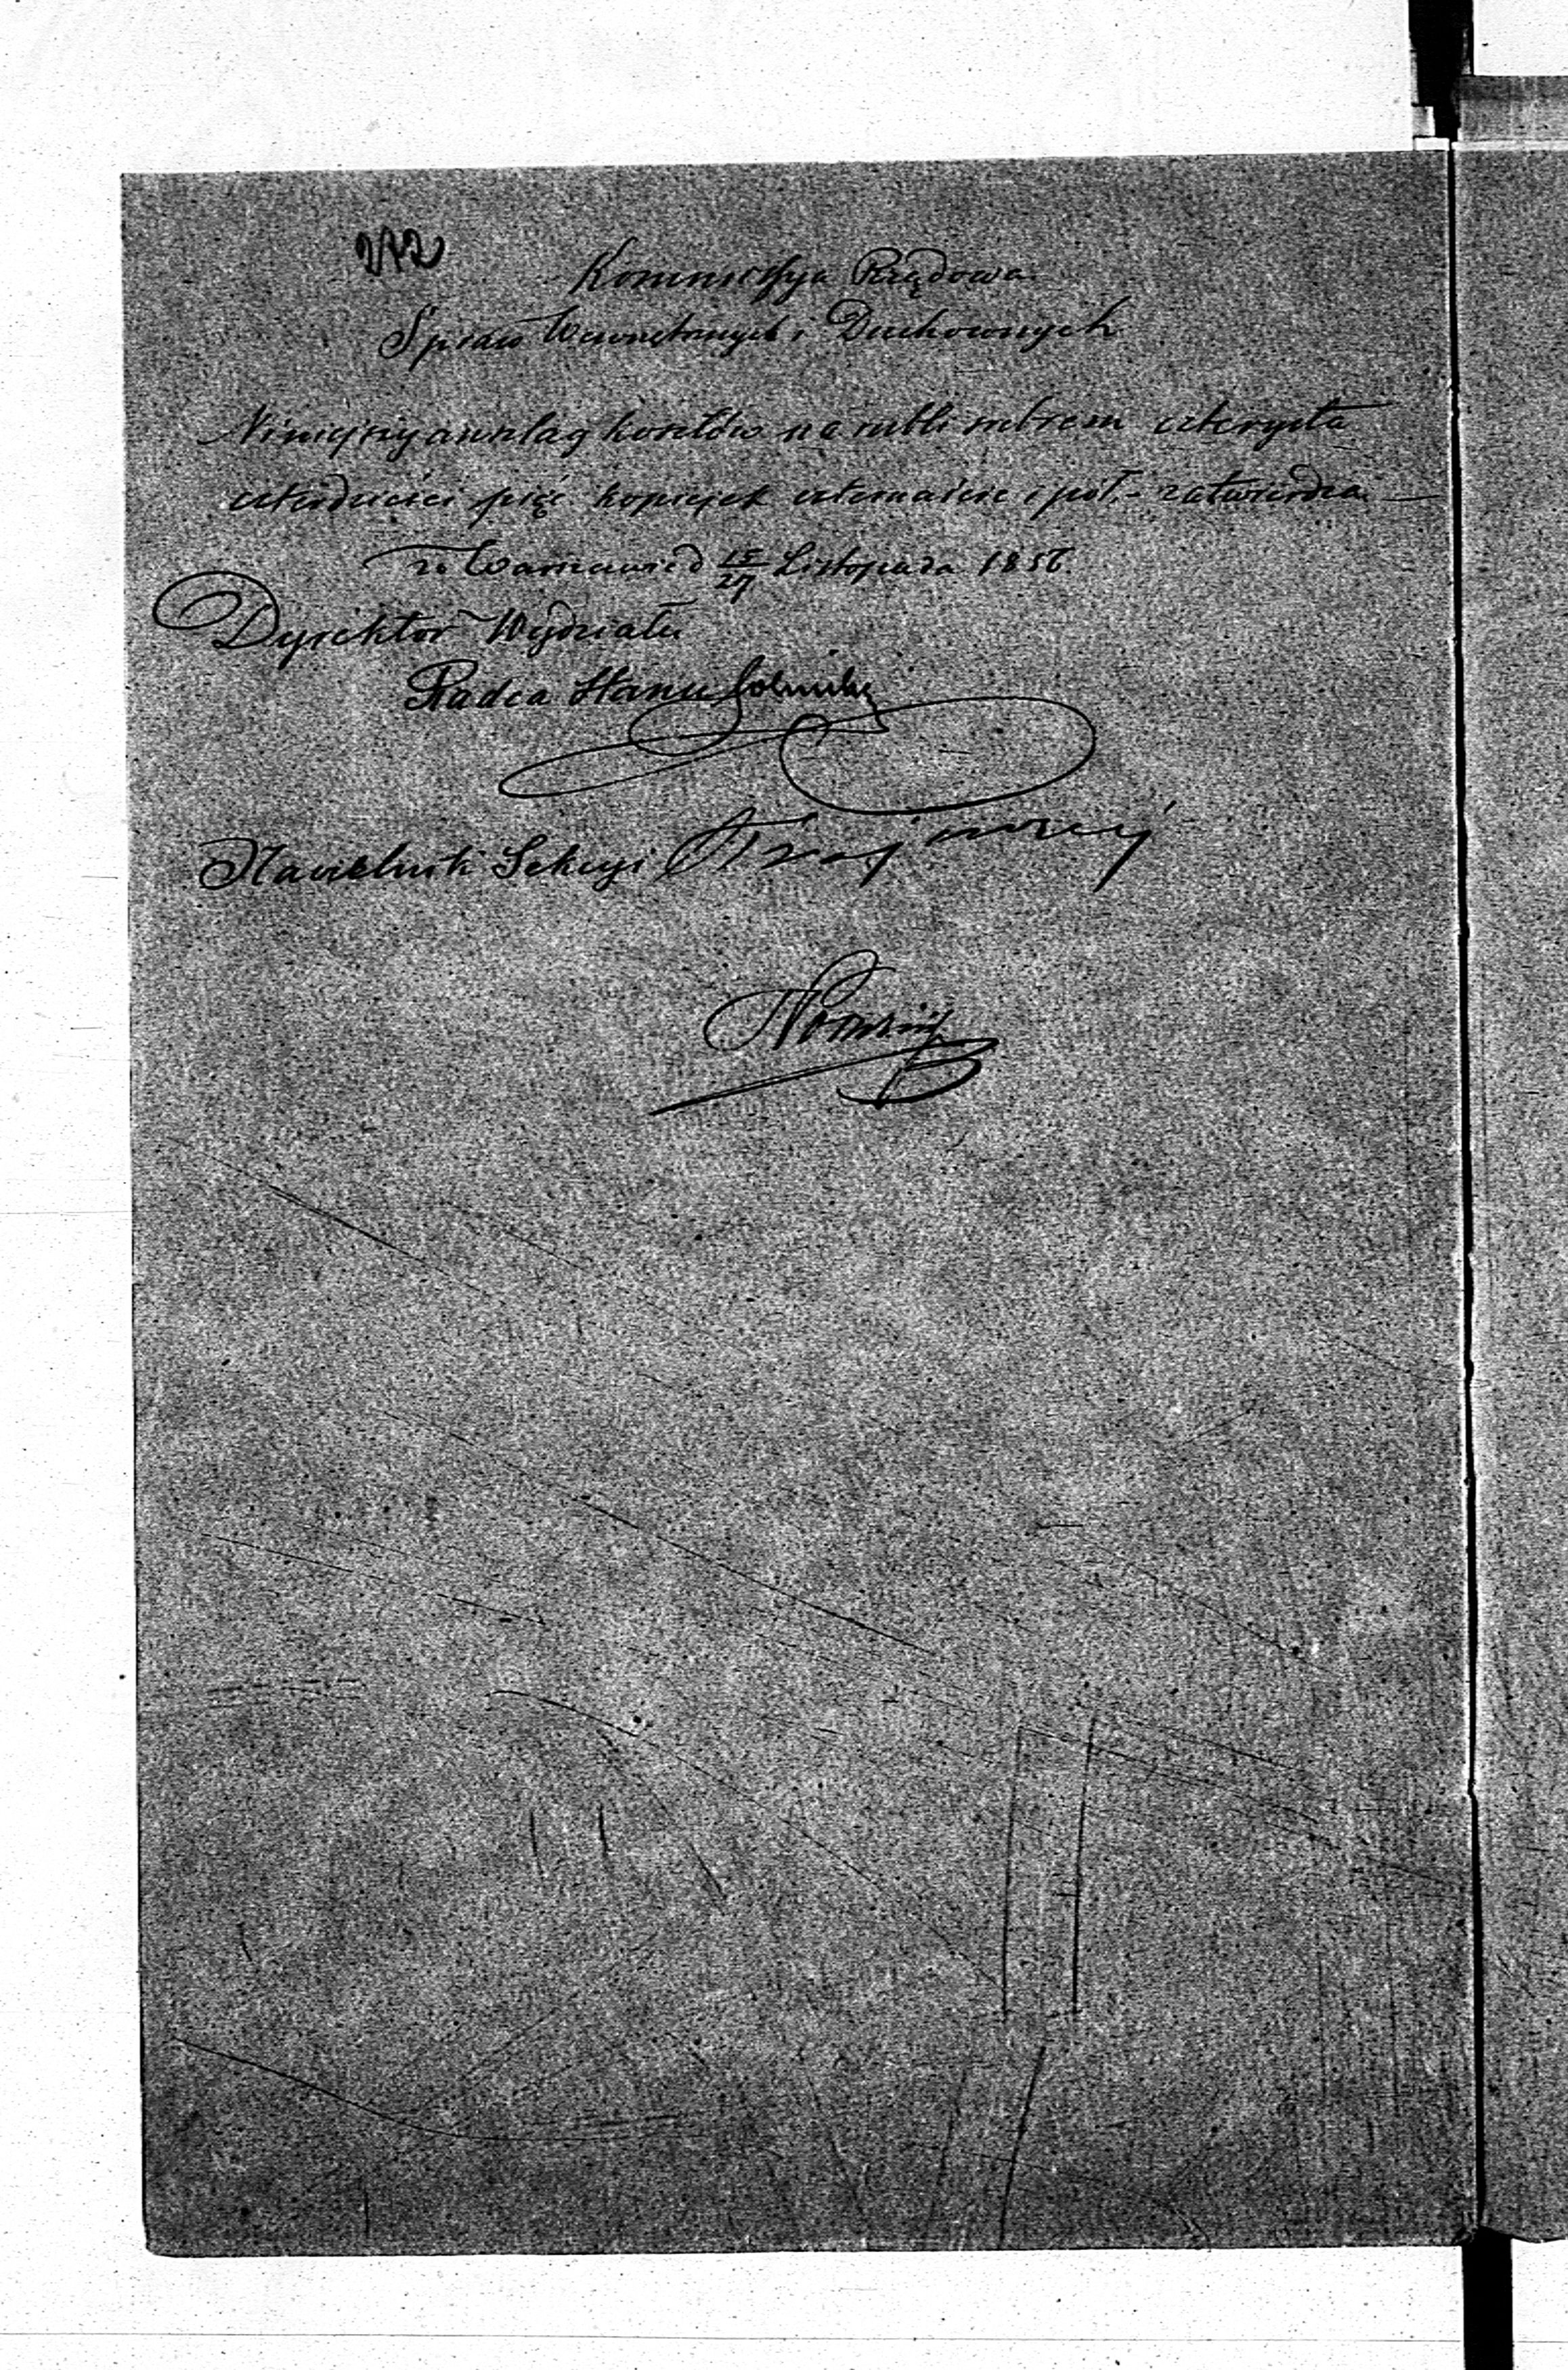 Kommissya Rządowa
Spraw Wewnętrznych i Duchownych
Niniejszy anszlag kosztów na rubli srebrem czterysta
czterdzieści pięć kopiejek czternaście i pół - zatwierdza
w Warszawie d 15/27 Listopada 1856.
Dyrektor Wydziału
Radca Stanu
Naczelnik Sekcyi